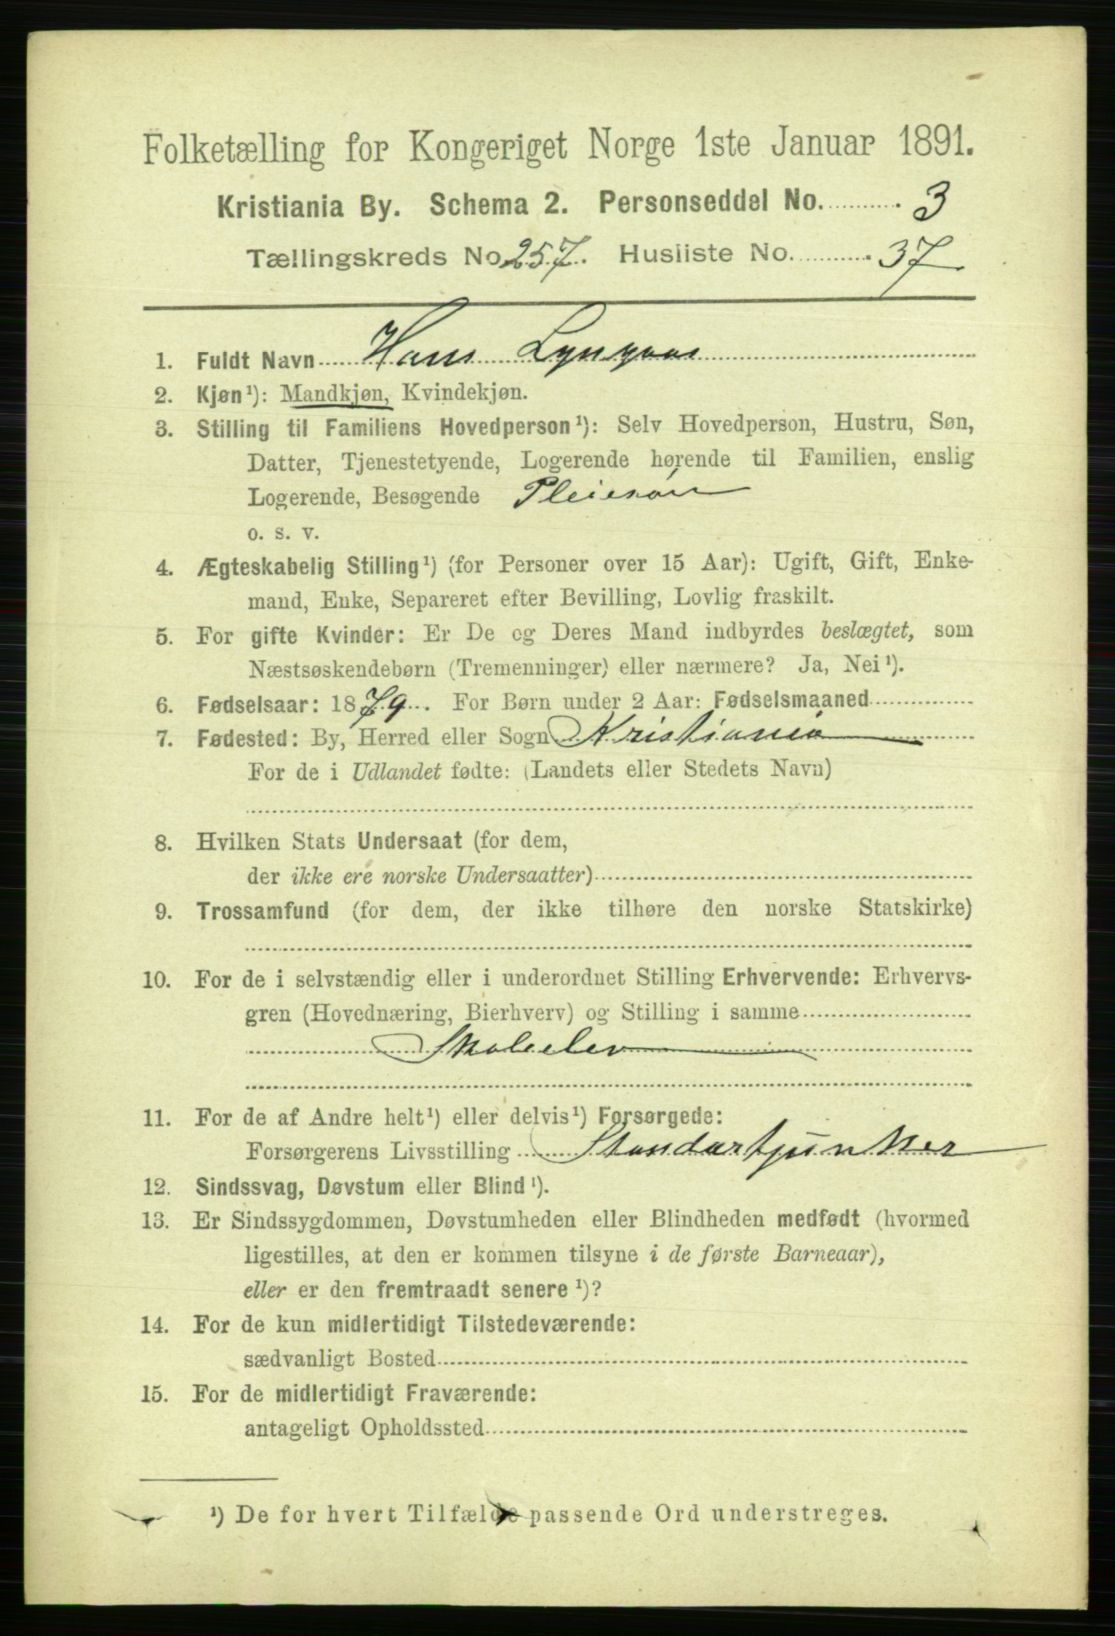 Folketælling for Kongeriget Norge 1ste Januar 1891.
Kristiania By. Schema 2. Personseddel No. 3
Tællingskreds No. 257. Husliste No. 37
1. Fuldt Navn Hans Lyngaas
2. Kjøn¹): Mandkjøn, Kvindekjøn.
3. Stilling til Familiens Hovedperson¹): Selv Hovedperson, Hustru, Søn,
Datter, Tjenestetyende, Logerende hørende til Familien, enslig
Logerende, Besøgende Pleiesøn
o. s. v.
4. Ægteskabelig Stilling¹) (for Personer over 15 Aar): Ugift, Gift, Enke-
mand, Enke, Separeret efter Bevilling, Lovlig fraskilt.
5. For gifte Kvinder: Er De og Deres Mand indbyrdes beslægtet, som
Næstsøskendebørn (Tremenninger) eller nærmere? Ja, Nei¹).
6. Fødselsaar: 1879. For Børn under 2 Aar: Fødselsmaaned
7. Fødested: By, Herred eller Sogn Kristiania
For de i Udlandet fødte: (Landets eller Stedets Navn)
8. Hvilken Stats Undersaat (for dem,
der ikke ere norske Undersaatter)
9. Trossamfund (for dem, der ikke tilhøre den norske Statskirke)
10. For de i selvstændig eller i underordnet Stilling Erhvervende: Erhvervs-
gren (Hovednæring, Bierhverv) og Stilling i samme
Skoleelev
11. For de af Andre helt¹) eller delvis¹) Forsørgede:
Forsørgerens Livsstilling Standartjunker
12. Sindssvag, Døvstum eller Blind¹).
13. Er Sindssygdommen, Døvstumheden eller Blindheden medfødt (hvormed
ligestilles, at den er kommen tilsyne i de første Barneaar),
eller er den fremtraadt senere¹)?
14. For de kun midlertidigt Tilstedeværende:
sædvanligt Bosted
15. For de midlertidigt Fraværende:
antageligt Opholdssted
¹) De for hvert Tilfælde passende Ord understreges.